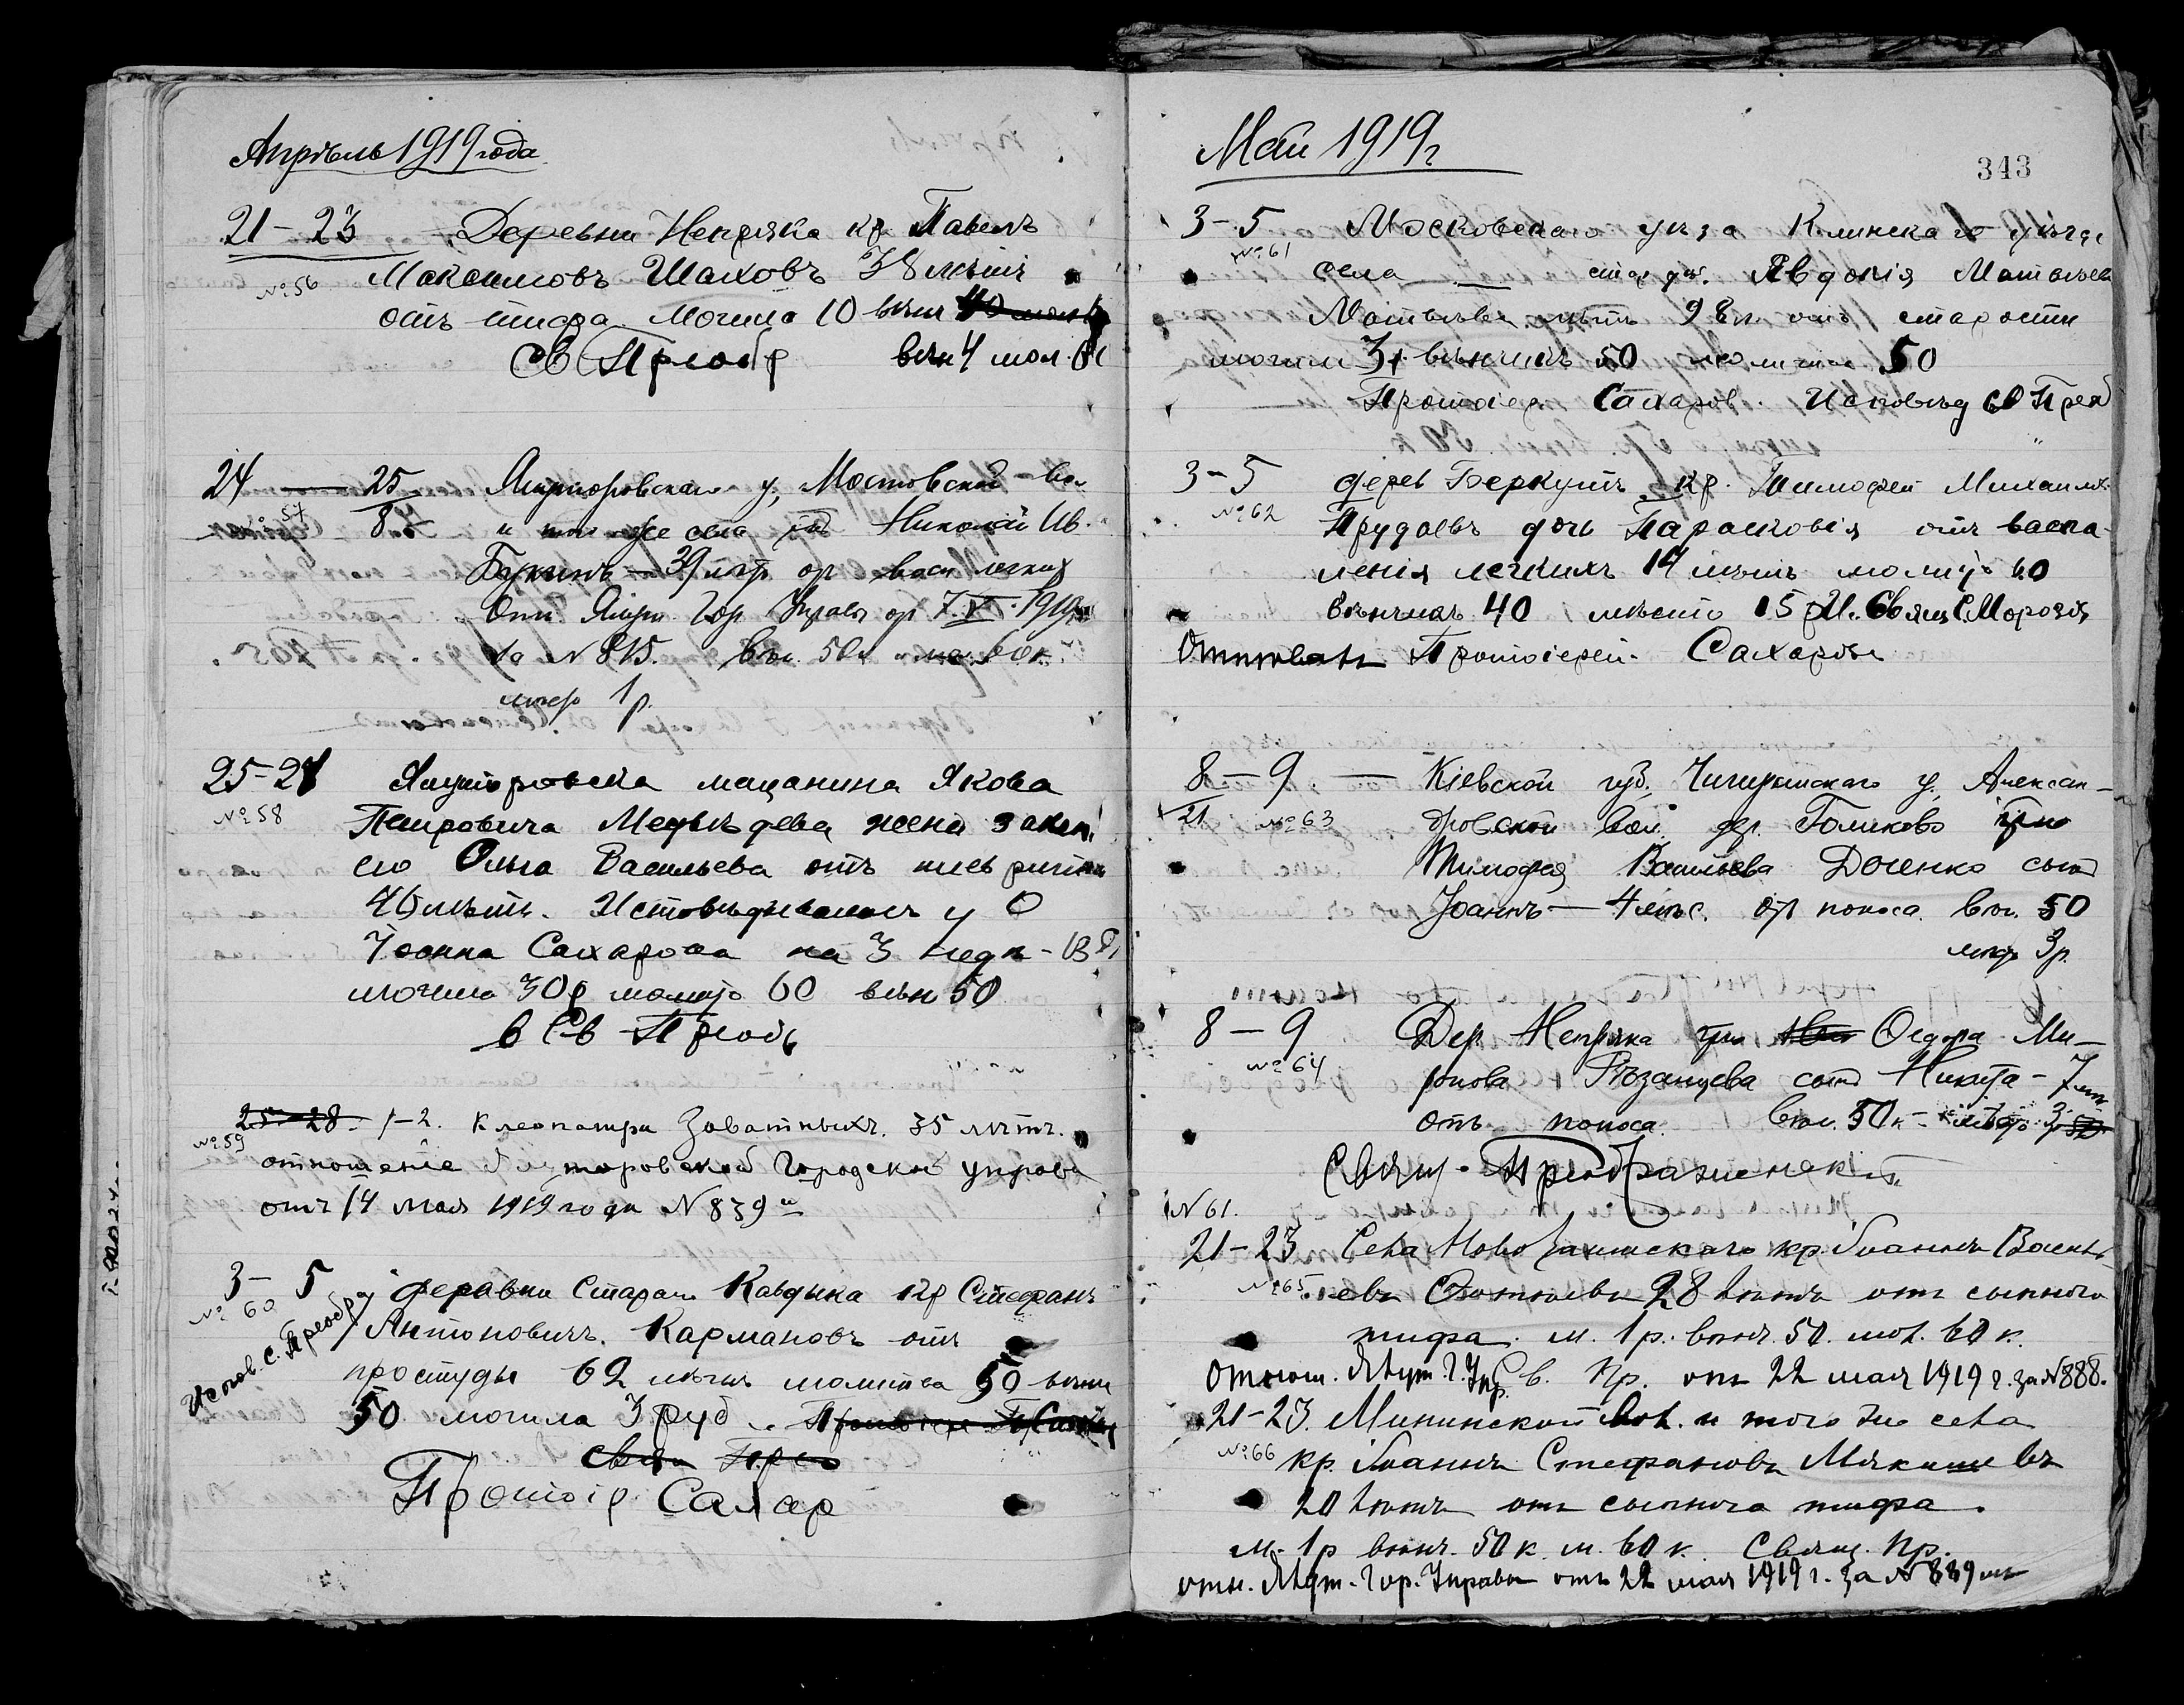 Апрѣль 1919 года
21 – 23 Деревни Непряка кр. Павелъ
№ 56 Максимовъ Шаховъ 38 лѣтъ
отъ тифа могила 10 вѣнч
Св Преобр вѣн 4 мол.
24 — 25 Ялуторовскаго у, Мостовской – вол
№ 57 8. и той же села Николай Ив.
Букинъ – 39 лѣтъ от восп легких
Отн Ялут. Гор. Управы от 7. V. 1919 г.
за N 815. Вѣн. 50 к мо. 60 к.
мѣсто 1 р.
25 – 27 Ялуторовска мащанина Якова
№ 58 Петровича Медвѣдева жена закон
его Ольга Васильева отъ
46 лѣтъ. Исповѣдывалась у О
Іоанна Сахарова на 3 нед
могила 30 р молит 60 вѣн 50
в Св Преоб
25 – 28. 1 – 2. Клеопатра Заватныхъ. 35 лѣтъ.
№ 59 отношение Ялуторовской Городской управы
отъ 14 мая 1919 года N 839
3 – 5 деравни Старая Кавдыка кр Стефанъ
№ 60 Антоновичъ. Кармановъ отъ
Испов. С. Преобр
простуды 62 лѣтъ молитва 50 вѣнч
50 могила 3 руб.
Свящ Прео
Протоіер. Сахар
Май 1919 г
343
3 – 5 Московскаго Клинскаго уѣзда
№ 61 села — Явдокія Матвѣева
Матвѣева лѣтъ 98 л. отъ старости
могила 3 р вѣнчикъ 50 молитва 50
Протоіер. Сахаров. Исповѣд св Преоб
3 – 5 дерев Беркутъ кр. Тимофей Михаил
№ 62 Прудаевъ дочь Парасковія отъ воспа-
ленія легкихъ 14 лѣтъ молит 60
вѣнчикъ 40 мѣсто 15 р И. Свящ С. Морозов
Отпѣвалъ Протоіерей Сахаровъ
8 – 9 — Кіевской губ. Чигиринскаго у. Алексан-
21 № 63 дровской вол. дер. Голиково гр.
Тимофея Васильева Доценко сынъ
Іоаннъ — 4 мѣс. от поноса. вѣн. 50
мѣсто 3 р.
8 – 9 Дер. Непряка гр. Ѳедора Ми-
№ 64 ронова Рѣзанцева сынъ Никита – 7 лѣт
отъ поноса. Вѣн. 50 к – мѣсто 3
Свящ. Преображенскій
N 61.
21 – 23 Села Ново Заимскаго кр. Іоаннъ Василь-
№ 65. евъ 28 лѣтъ отъ сыпного
тифа. м. 1 р. вѣнч. 50. мол. 60 к.
Отнош. Ялут. Г. Упр. Св. Пр. отъ 22 мая 1919 г. за N 888.
21 – 23. Мининской вол. и того же села
№ 66 кр. Іоаннъ Стефановъ Мякишевъ
20 лѣтъ отъ сыпного тифа.
м. 1 р вѣнч. 50 к. м. 60 к. Свящ. Пр.
отн. Ялут. Гор. Управы отъ 22 мая 1919 г. за N 889